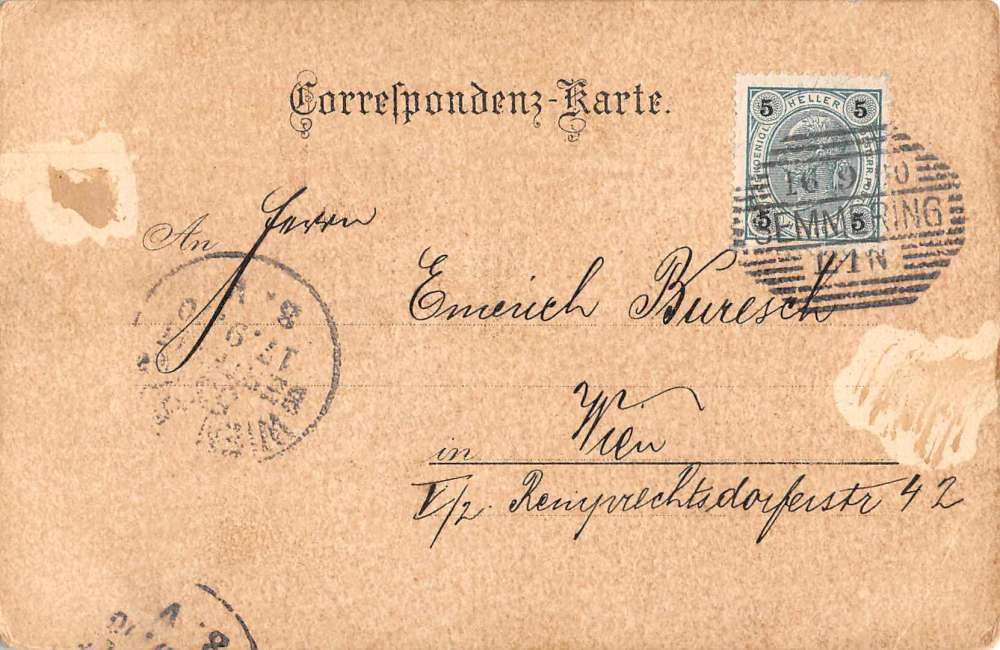 Correspondenz-Karte.
5 HELLER 5
5 5
16 9 00
SEMMERING
An Herrn
Emerich Buresch
in Wien
V/2. Remprechtsdorferstr 42
8. V
17. 9. 0
WIEN
8. V